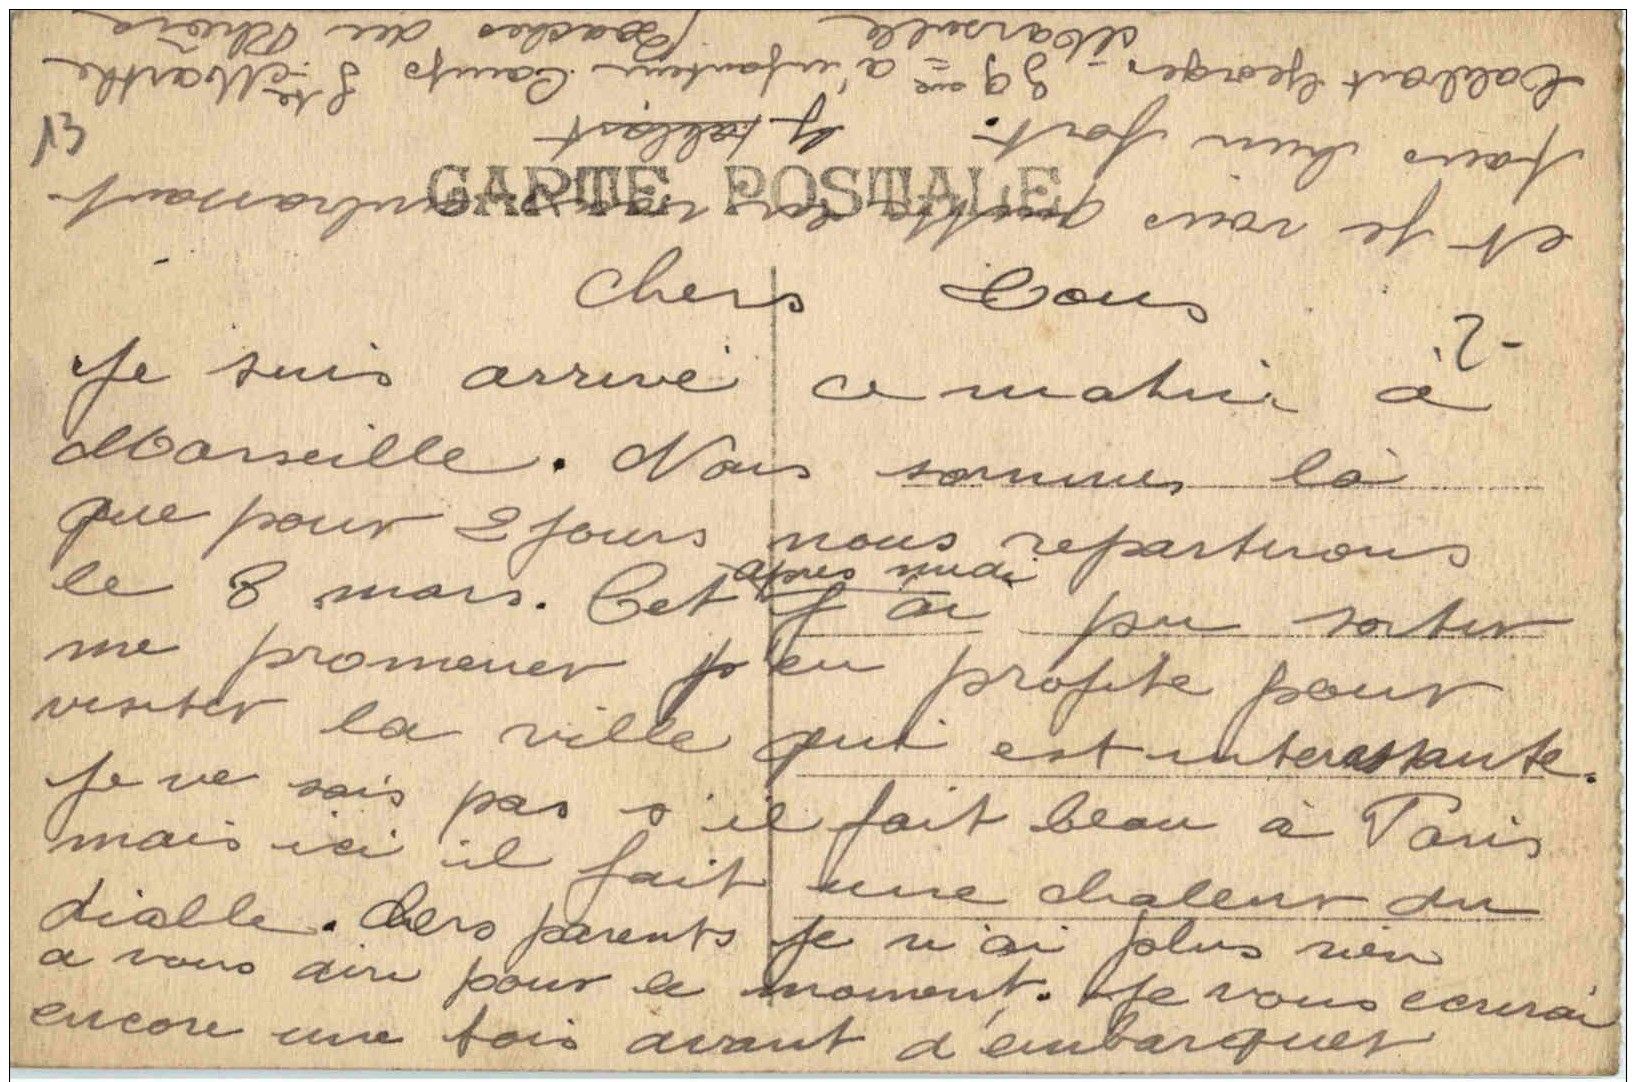 CARTE POSTALE
13
2-
Chers Tous
Je suis arrivé ce matin à
Marseille. Nous sommes là
que pour 2 jours nous repartirons
le 8 mars. Cet après midi j'ai pu sortir
me promener j'en profite pour
visiter la ville qui est interessante.
Je ne sais pas s'il fait beau à Paris
mais ici il fait une chaleur du
diable. Chers parents je n'ai plus rien
a vous dire pour le moment. Je vous ecrirai
encore une fois avant d'embarquer
et je vous quitte en vous embrassant
tous bien fort.
Georges 39 d'infanterie Camp Ste Marthe
Marseille Bouches du Rhône